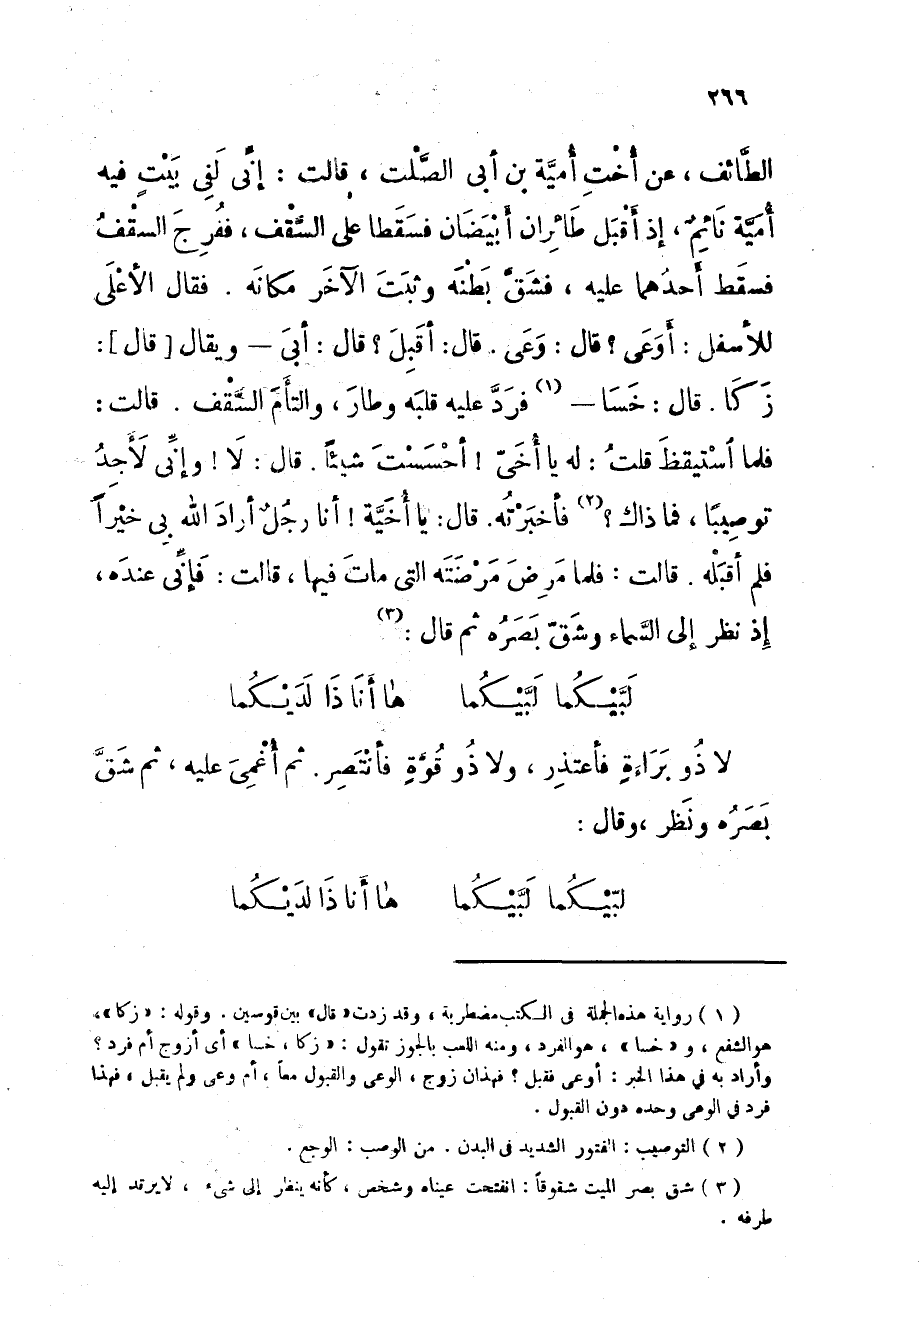 ٢٦٦
الطَّائف ، عن أُخْتِ أُميَّة بن أبى الصَّلْت ، قالت : إنِّى لَفِى بَيْتٍ فيه
أُمَيَّة نَائِمٌ ، إذ أَقْبَل طَائِران أَبْيَضَان فسَقَطا على السَّقْف ، ففُرِجَ السقْفُ
فسقَط أَحدُهما عليه ، فشَقَّ بَطْنَه وثبَتَ الآخَر مكانَه . فقال الأعْلَى
للأسفل : أَوَعَى ؟ قال : وَعَى . قال : أقَبِلَ ؟ قال : أبَى — ويقال [ قال ] :
زَكَا . قال : خَسَا — (١) فرَدَّ عليه قلبَه وطارَ ، والتأَمَ السَّقْف . قالت :
فلما اسْتيقظَ قلتُ : له يا أُخَىّ ! أحْسَسْتَ شيئاً . قال : لَا ! وإنِّى لَأَجِدُ
توصِيبًا ، فما ذاك ؟ (٢) فأخبَرْتُه . قال : يا أُخَيَّة ! أنا رجُلٌ أرادَ الله بِى خَيْراً
فلم أَقبَلْه . قالت : فلما مَرِضَ مَرْضَتَه التى ماتَ فيها ، قالت : فَإِنِّى عندَه ،
إذ نظر إلى السَّماء وشَقّ بَصَرُه ثم قال : (٣)
لَبَّيْكُما لَبَّيْكُما هَا أَنَا ذَا لَدَيْكُما
لا ذُو بَرَاءَةٍ فأعتذِر ، ولا ذُو قُوَّةٍ فأنْتَصِر . ثم أُغْمِىَ عليه ، ثم شَقَّ
بَصَرُه ونَظر ، وقال :
لبّيْكُما لَبَّيْكُما هَا أَنا ذَا لدَيْكُما
( ١ ) رواية هذه الجملة فى الكتب مضطربة ، وقد زدت « قال » بين قوسين . وقوله : « زكا » ،
هو الشفع ، و « خسا » ، هو الفرد ، ومنه اللعب بالجوز تقول : « زكا ، خسا » أى أزوج أم فرد ؟
وأراد به فى هذا الخبر : أوعى فقبل ؟ فهذان زوج ، الوعى والقبول معاً ، أم وعى ولم يقبل ، فهذا
فرد فى الوعى وحده دون القبول .
( ٢ ) التوصيب : الفتور الشديد فى البدن . من الوصب : الوجع .
( ٣ ) شق بصر الميت شقوقاً : انفتحت عيناه وشخص ، كأنه ينظر إلى شىء ، لا يرتد إليه
طرفه .